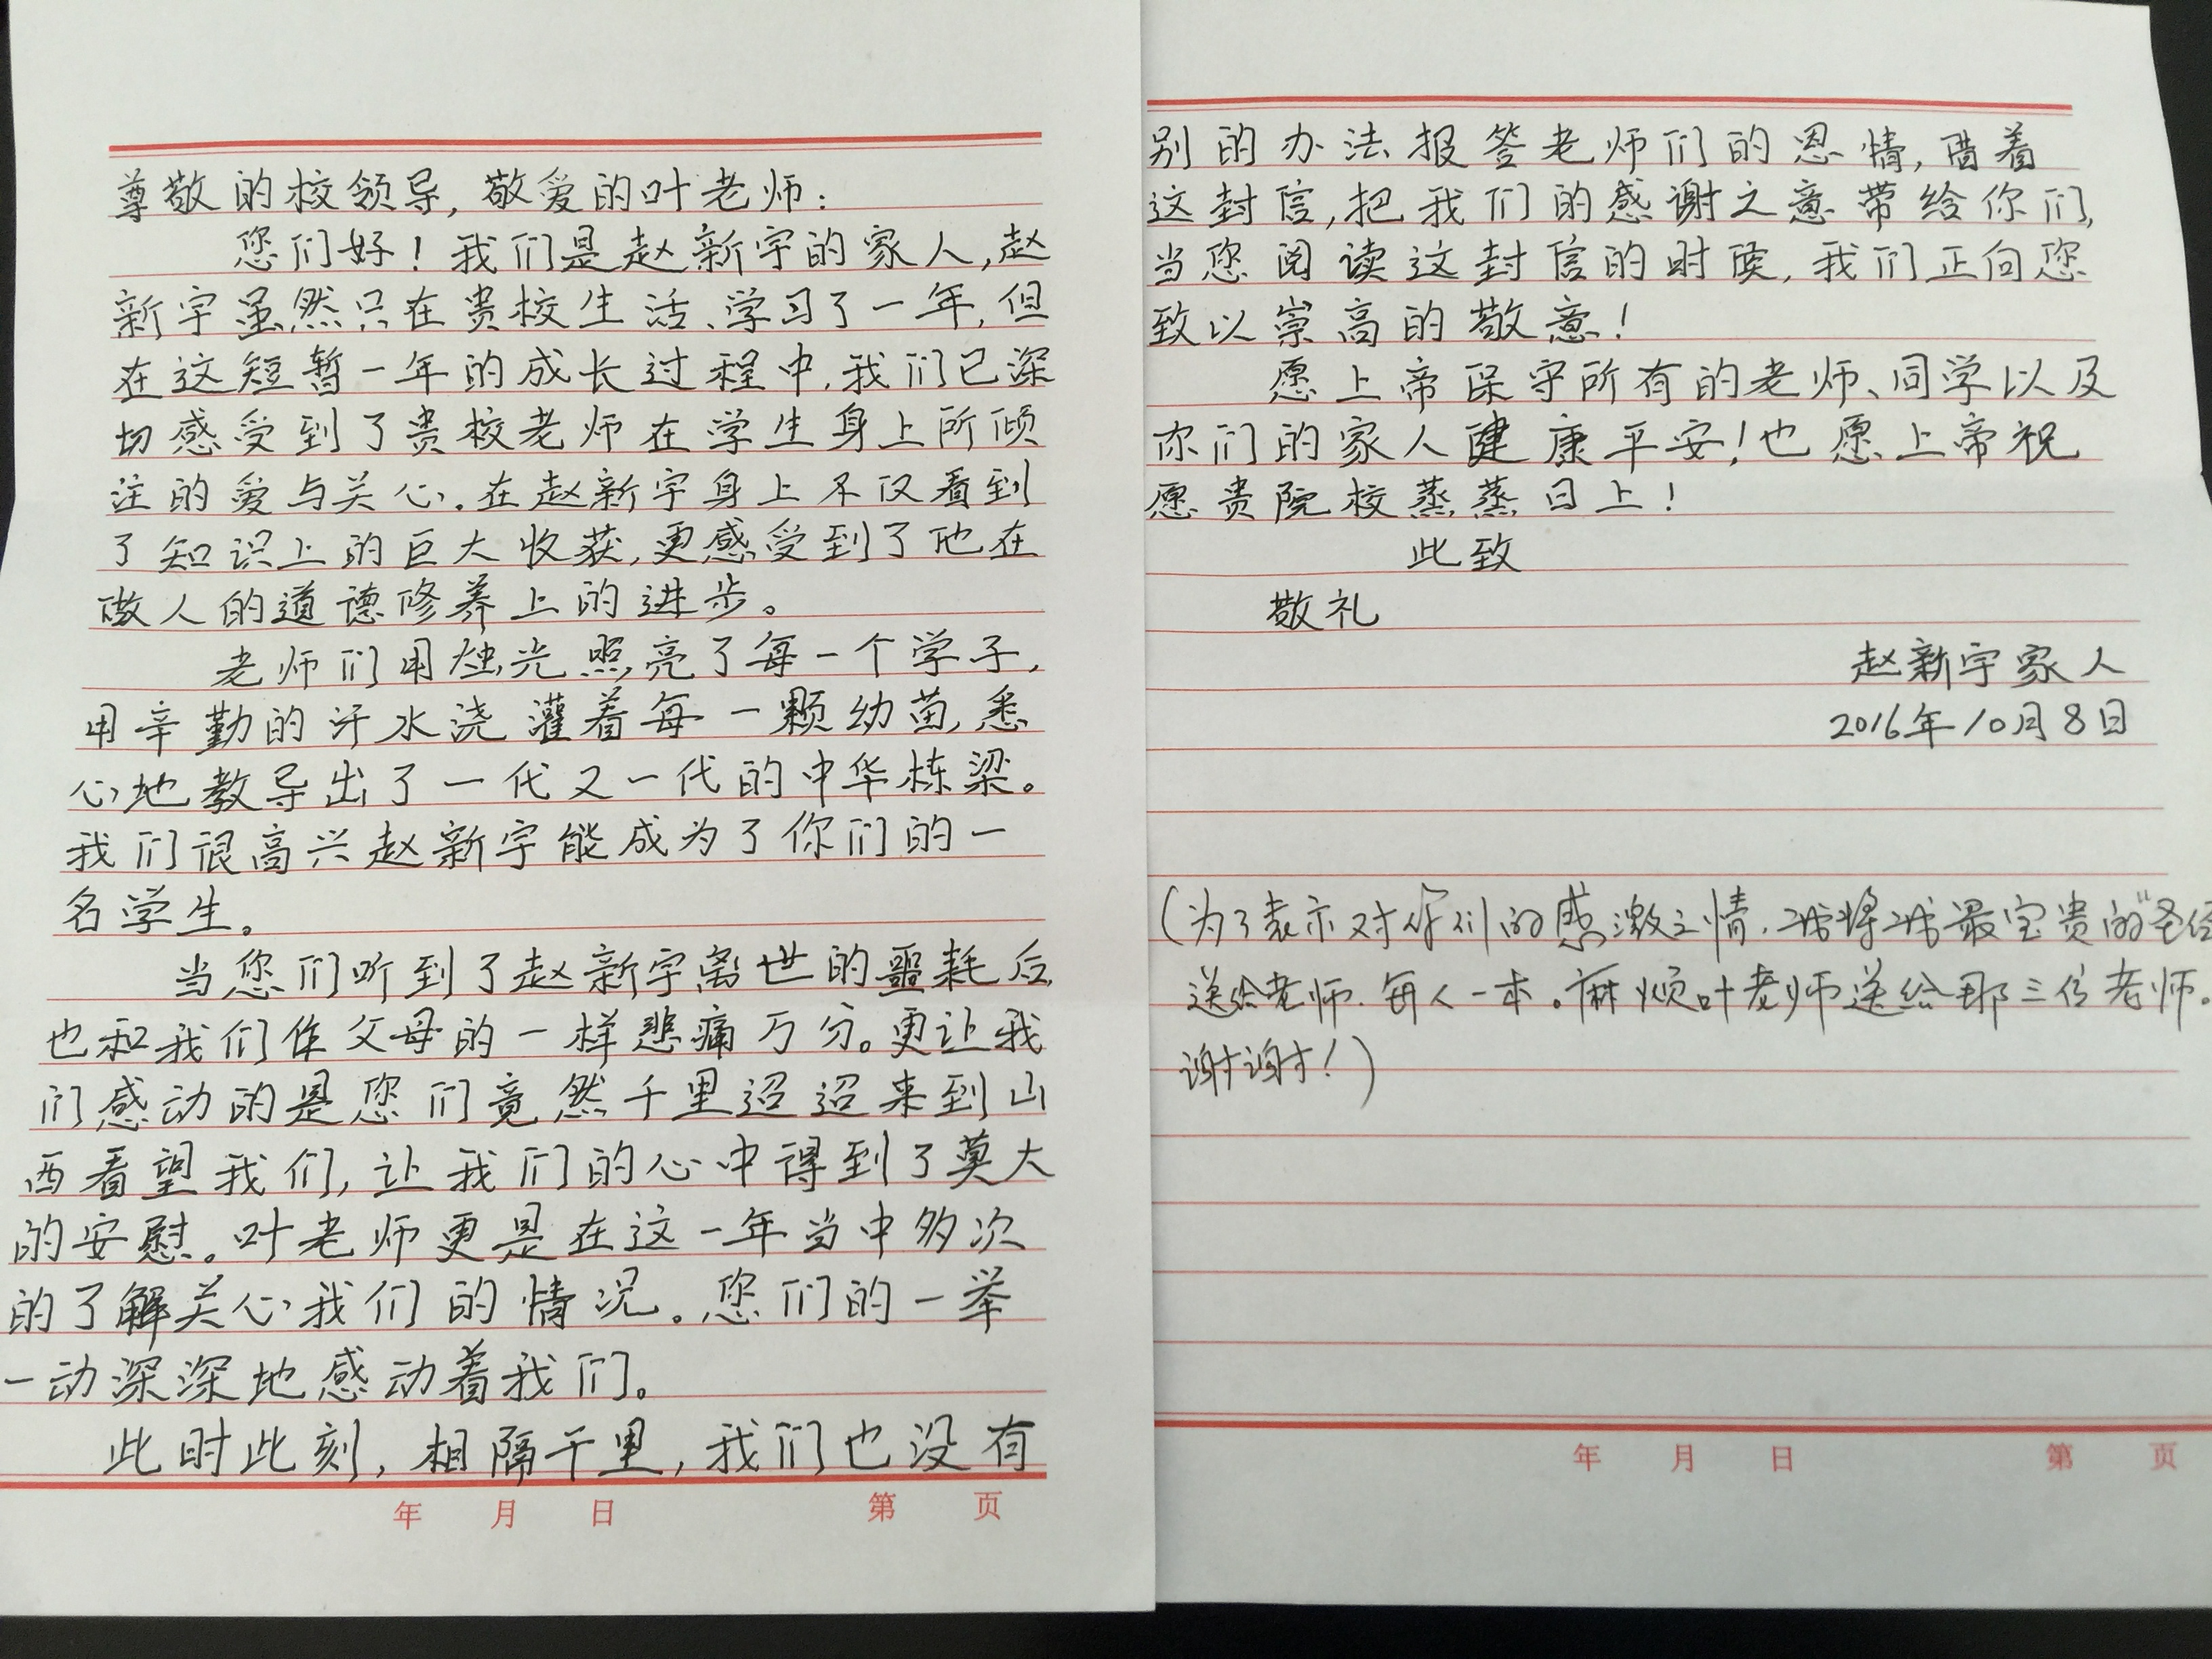 尊敬的校领导,敬爱的叶老师:
您们好!我们是赵新宇的家人,赵
新宇虽然只在贵校生活、学习了一年,但
在这短暂一年的成长过程中,我们已深
切感受到了贵校老师在学生身上所倾
注的爱与关心.在赵新宇身上不仅看到
了知识上的巨大收获,更感受到了他在
做人的道德修养上的进步。
老师们用烛光照亮了每一个学子,
用辛勤的汗水浇灌着每一颗幼苗,悉
心地教导出了一代又一代的中华栋梁。
我们很高兴赵新宇能成为了你们的一
名学生。
当您们听到了赵新宇离世的噩耗后,
也和我们作父母的一样悲痛万分。更让我
们感动的是您们竟然千里迢迢来到山
西看望我们,让我们的心中得到了莫大
的安慰。叶老师更是在这一年当中多次
的了解关心我们的情况。您们的一举
一动深深地感动着我们。
此时此刻,相隔千里,我们也没有
年 月 日 第 页
别的办法报答老师们的恩情,借着
这封信,把我们的感谢之意带给你们,
当您阅读这封信的时候,我们正向您
致以崇高的敬意!
愿上帝保守所有的老师、同学以及
你们的家人健康平安!也愿上帝祝
愿贵院校蒸蒸日上!
此致
敬礼
赵新宇家人
2016年10月8日
(为了表示对你们的感激之情.我将我最宝贵的“圣经
送给老师.每人一本。麻烦叶老师送给那三位老师。
谢谢!)
年 月 日 第 页